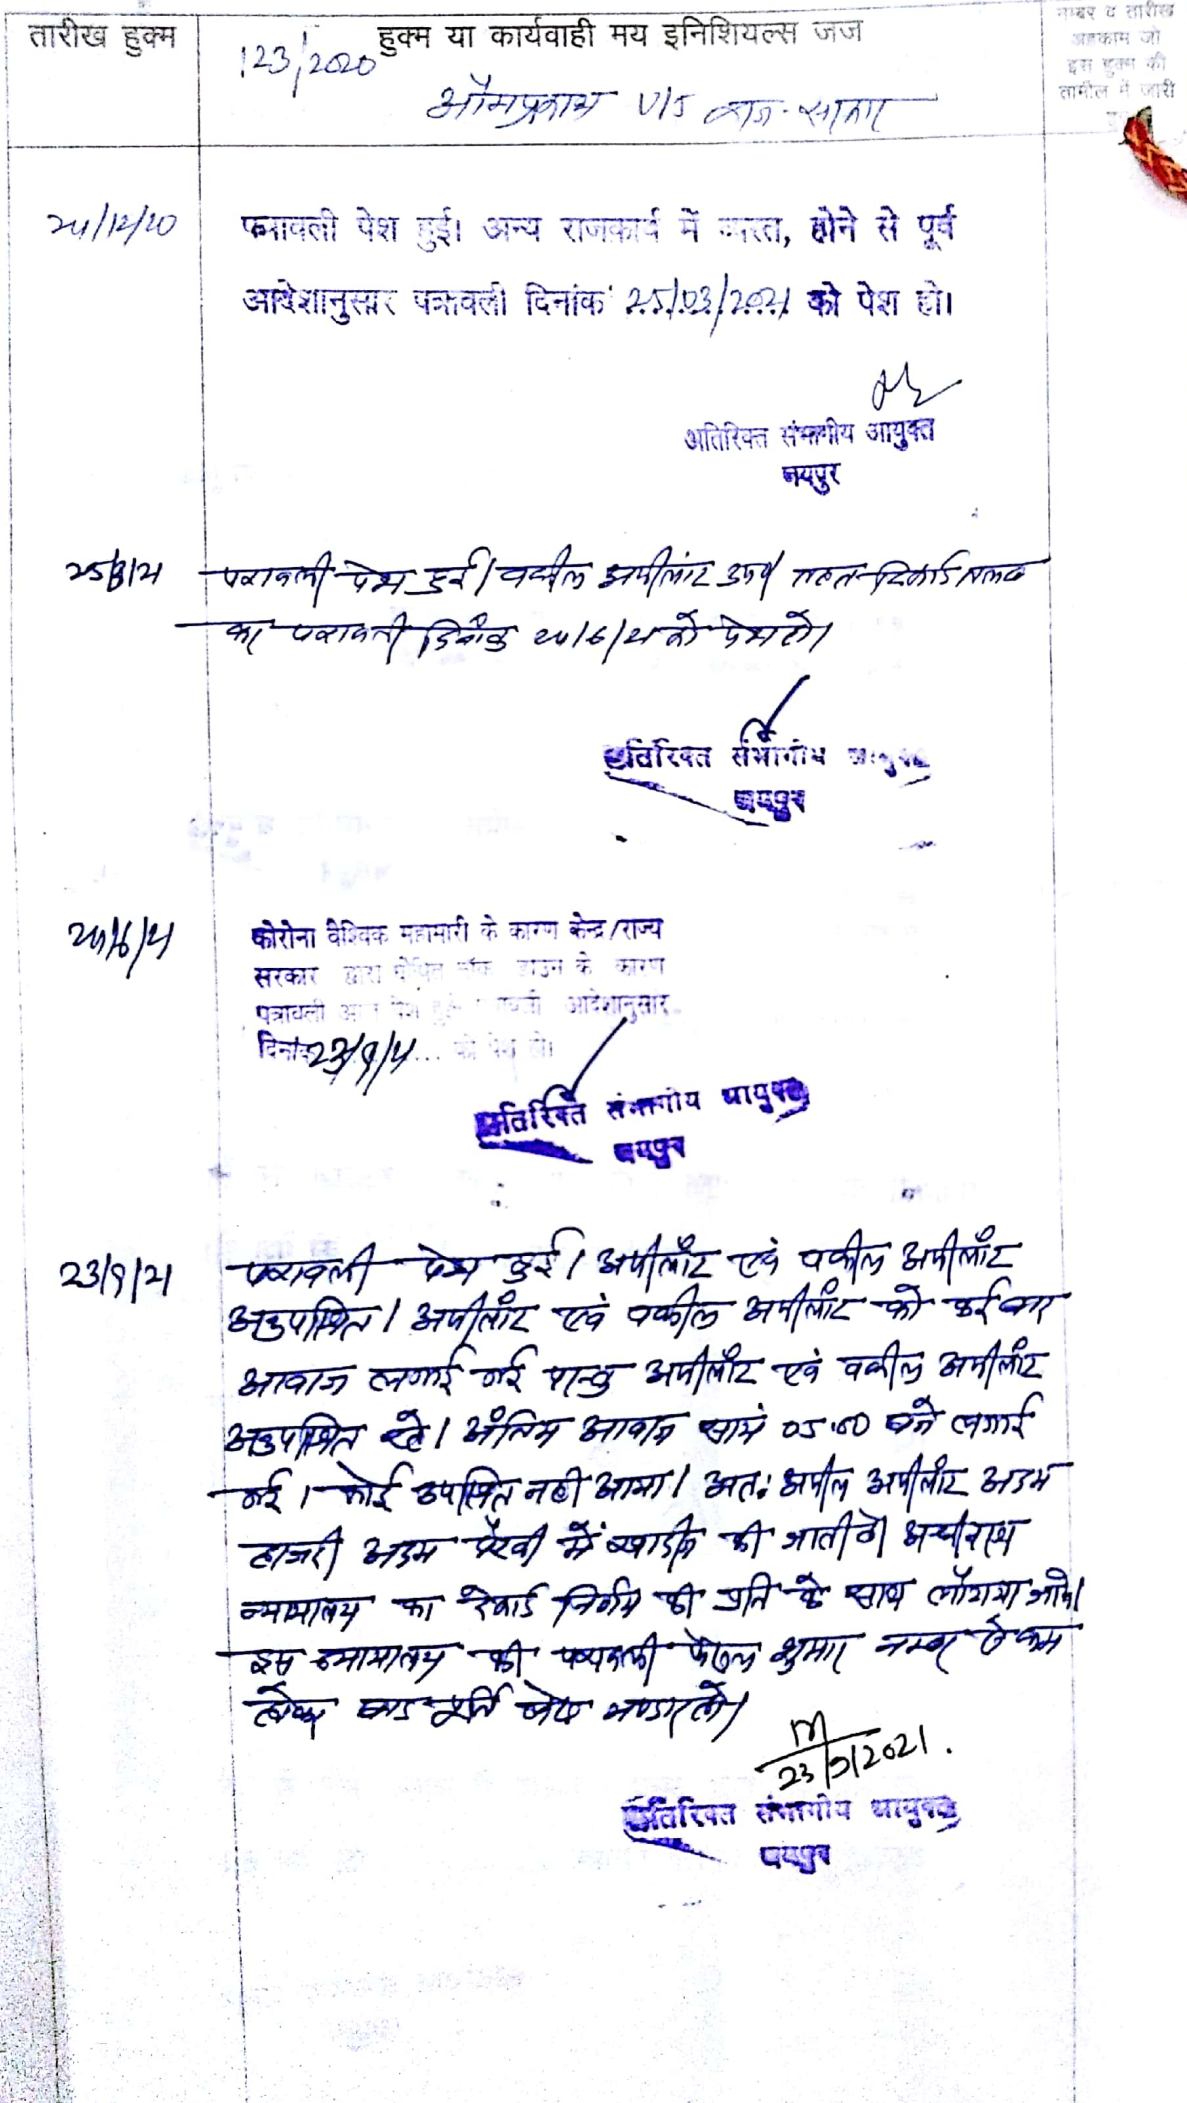 तारीख हुक्म
हुक्म या कार्यवाही मय इनिशियल्स जज
नम्बर व तारीख
अहकाम जो
इस हुक्म की
तामील में जारी
123/2020
ओमप्रकाश V/S राज. सरकार
24/12/20
पत्रावली पेश हुई। अन्य राजकार्य में व्यस्त, होने से पूर्व
आदेशानुसार पत्रावली दिनांक 25/03/2021 को पेश हो।
अतिरिक्त संभागीय आयुक्त
जयपुर
25/3/21
पत्रावली पेश हुई। वकील अपीलांट उप। तहत रिकार्ड तलब
कर पत्रावली दिनांक 24/6/21 को पेश हो।
अतिरिक्त संभागीय आयुक्त
जयपुर
24/6/21
कोरोना वैश्विक महामारी के कारण केन्द्र/राज्य
सरकार द्वारा घोषित लॉक डाउन के कारण
पत्रावली आज पेश हुई पत्रावली आदेशानुसार
दिनांक 23/9/21 को पेश हो।
अतिरिक्त संभागीय आयुक्त
जयपुर
23/9/21
पत्रावली पेश हुई। अपीलांट एवं वकील अपीलांट
अनुपस्थित। अपीलांट एवं वकील अपीलांट को कई बार
आवाज लगाई गई परन्तु अपीलांट एवं वकील अपीलांट
अनुपस्थित रहे। अंतिम आवाज सायं 05.00 बजे लगाई
गई। कोई उपस्थित नहीं आया। अतः अपील अपीलांट अदम
हाजरी अदम पैरवी में खारीज की जाती है। अधीनस्थ
न्यायालय का रेकार्ड निर्णय की प्रति के साथ लौटाया जावे।
इस न्यायालय की पत्रावली फैसल शुमार नम्बर से कम
होकर बाद पूर्ति लेख भण्डार हो।
23/9/2021.
अतिरिक्त संभागीय आयुक्त
जयपुर